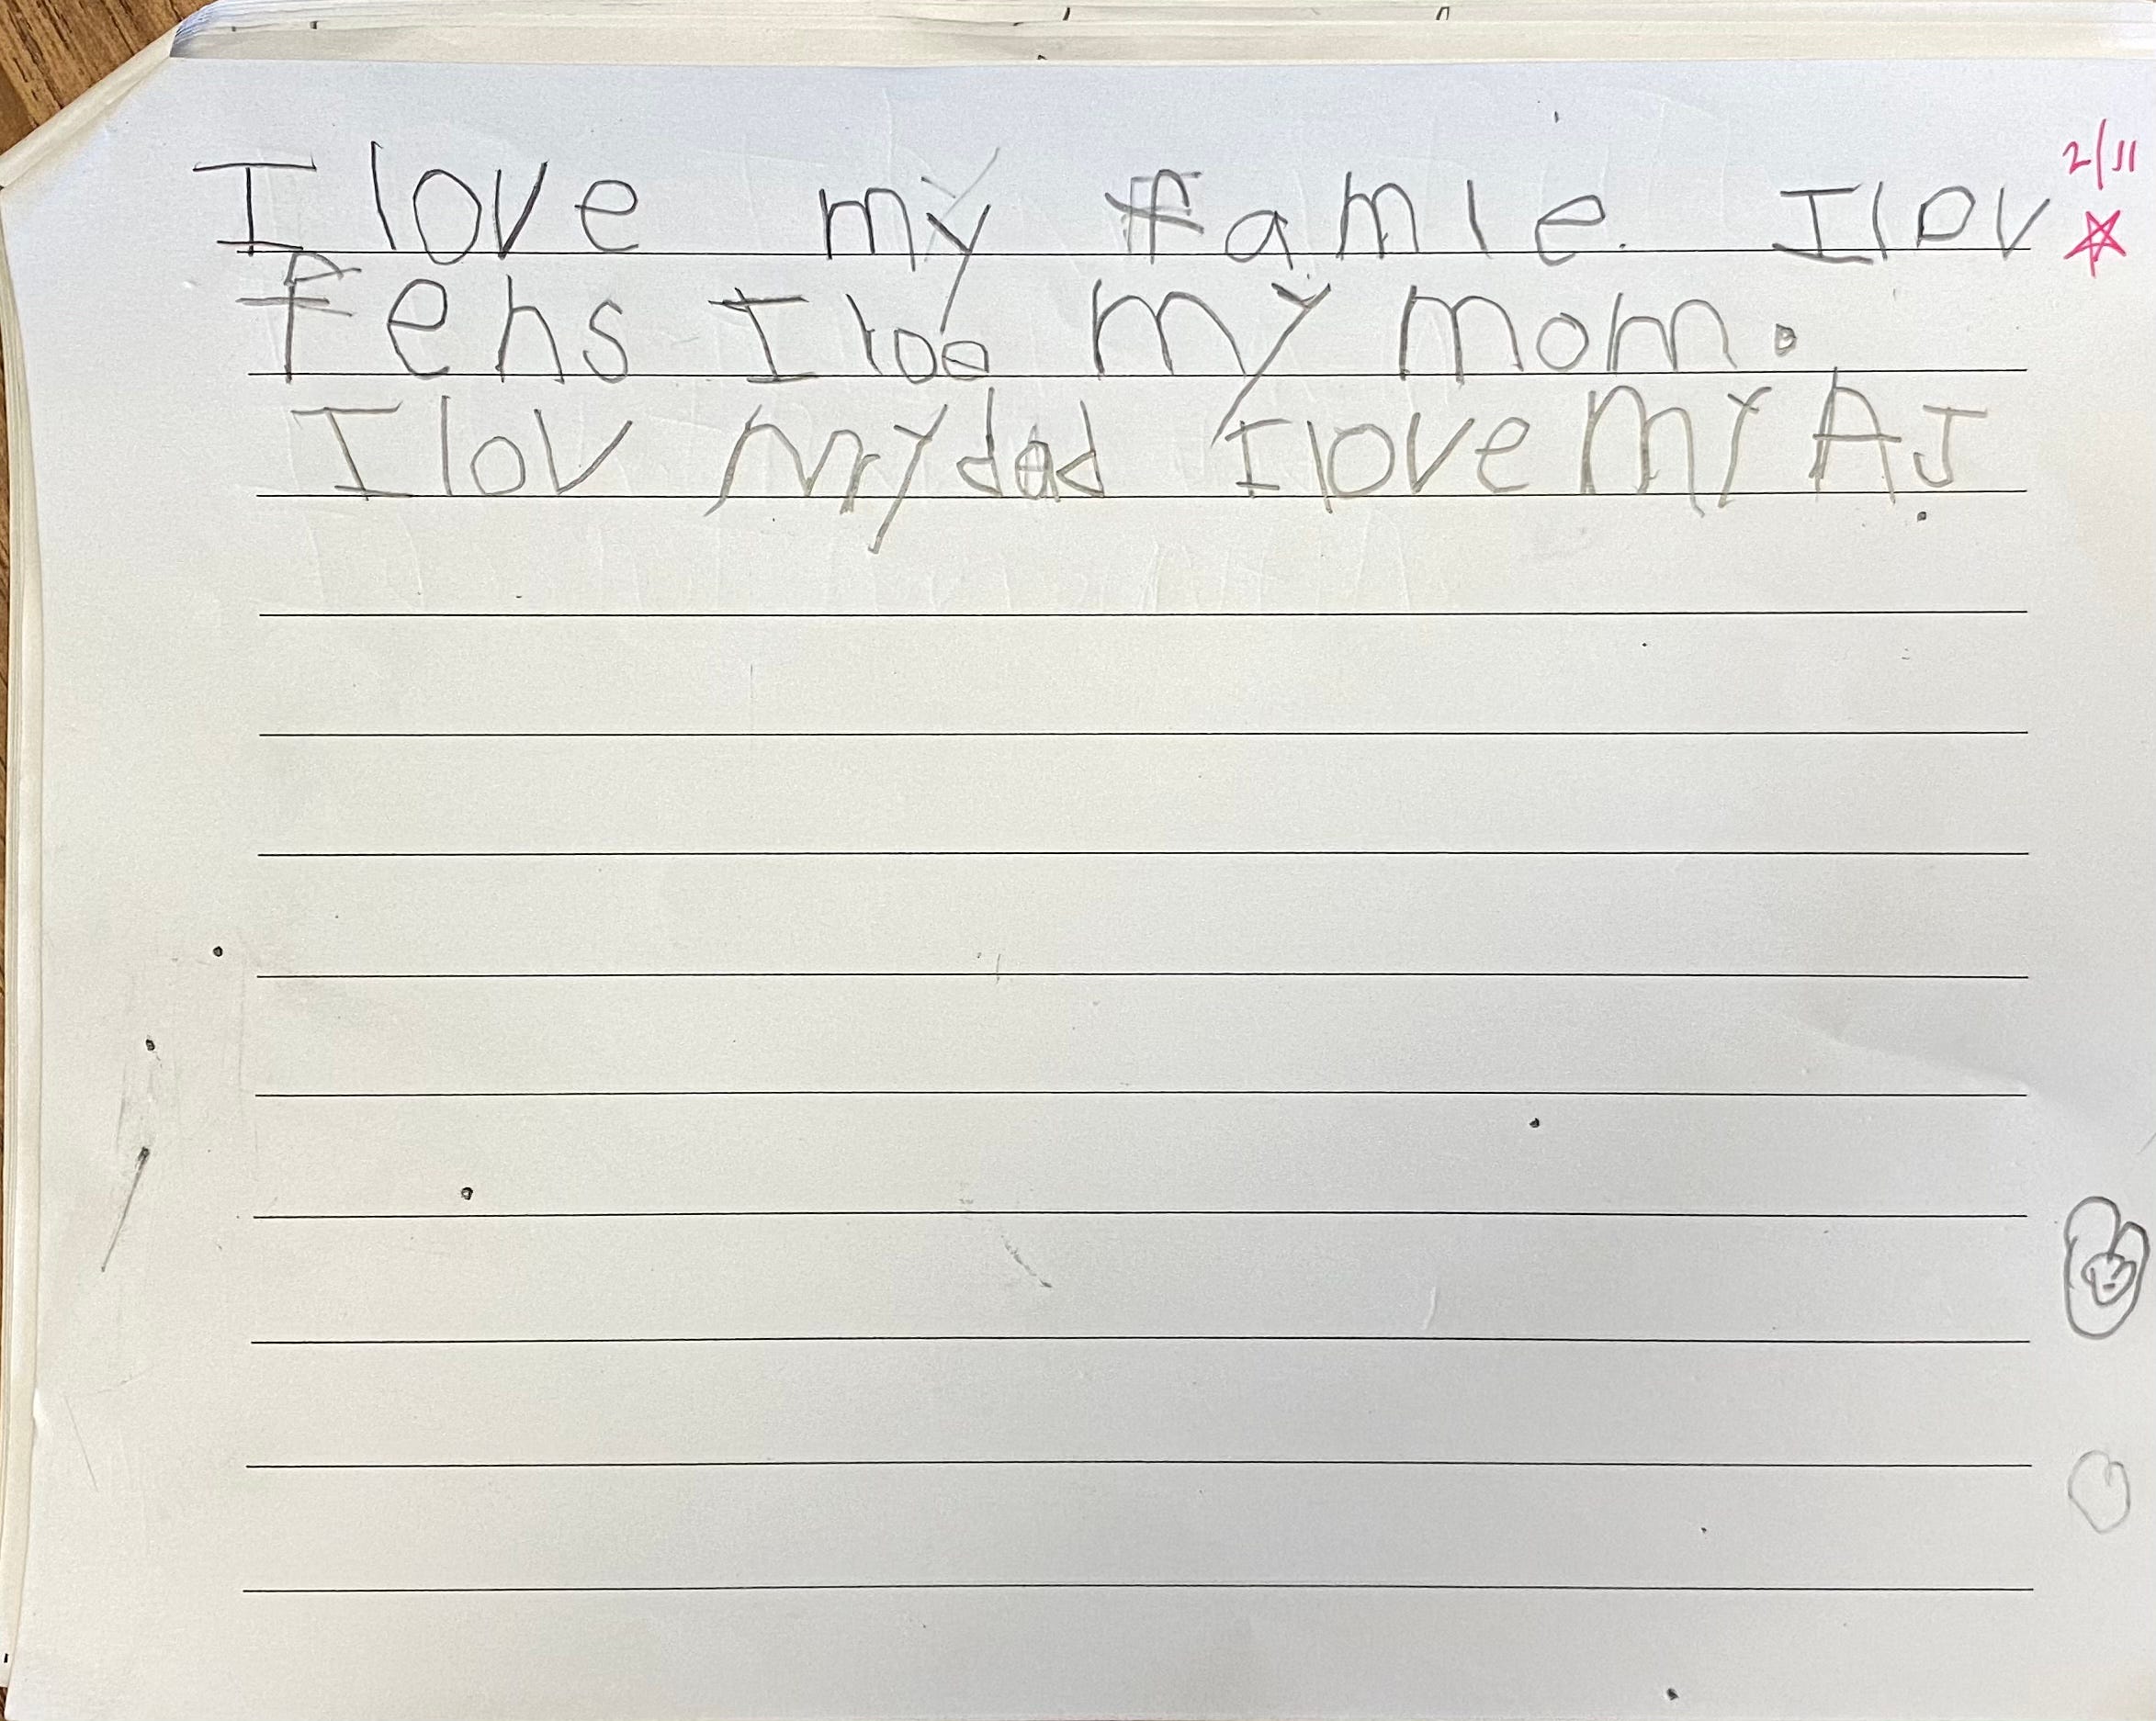 I love my famle. I lov 2/11
fens I loe my mom.
I lov my dad I love my AJ.